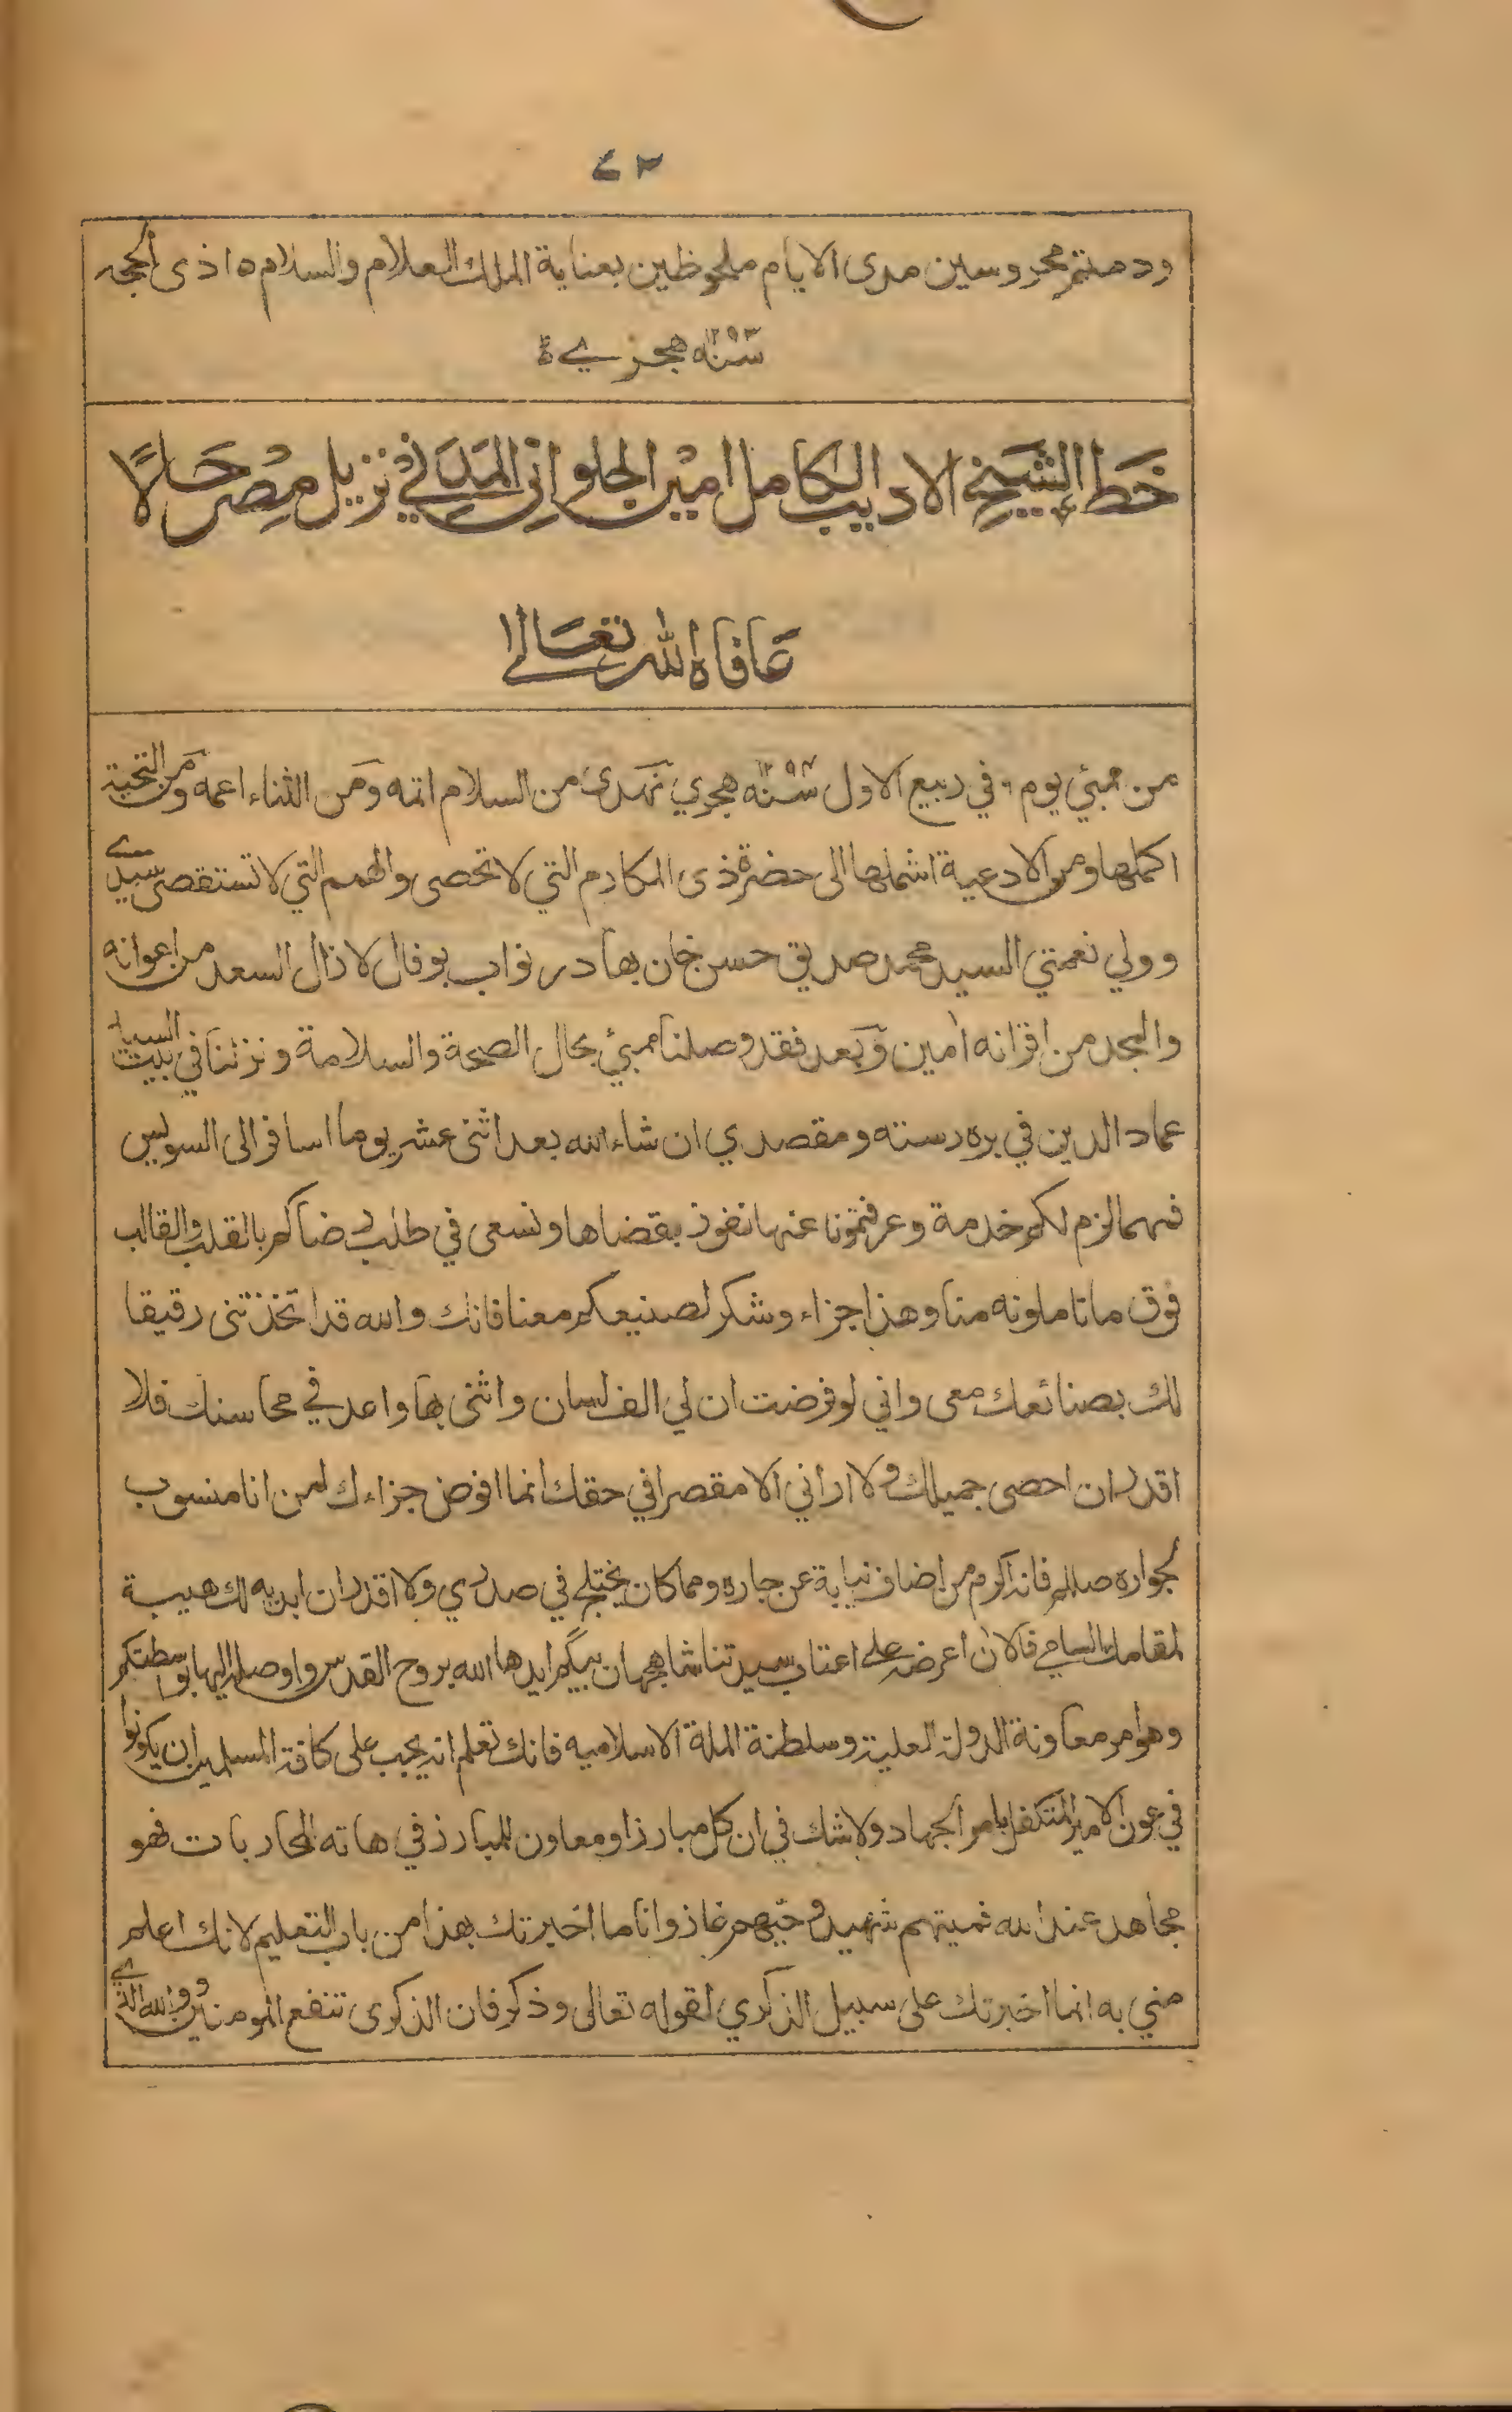 ٤٣
ودمتم محروسين مدى الايام ملحوظين بعناية الملك العلام والسلام ٥ ا ذى الحجه
سنه ١٢٩٣ هجرية
خط الشيخ الاديب الكامل امين الحلواني المدني نزيل مصر حالا
عافاه الله تعالى
من ممبئي يوم ٩ في ربيع الاول سنه ١٢٩٤ هجري نهدى من السلام اتمه ومن الثناء اعمه ومن التحية
اكملها ومن الادعية اشملها الى حضرة ذى المكارم التي لا تحصى والهمم التي لا تستقصى سيدي
وولي نعمتي السيد محمد صديق حسن خان بهادر نواب بوفال لا زال السعد من اعوانه
والمجد من اقرانه امين وبعد فقد وصلنا ممبئ بحال الصحة والسلامة ونزلنا في بيت السيد
عماد الدين في بره رسته ومقصدي ان شاء الله بعد اثنى عشر يوما اسافر الى السويس
فمهما لزم لكم خدمة وعرفتمونا عنها نفوز بقضاها ونسعى في طلب رضاكم بالقلب والقالب
فوق ما تاملونه منا وهذا جزاء وشكر لصنيعكم معنا فانك والله قد اتخذتنى رقيقا
لك بصنائعك معى واني لو فرضت ان لي الف لسان واثنى بها واعد في محاسنك فلا
اقدر ان احصى جميلك ولا اراني الا مقصرا في حقك انما افوض جزاءك لمن انا منسوب
بجواره صللم فانه اكرم من اضاف نيابة عن جاره ومما كان يختلج في صدري ولا اقدر ان ابديه لك هيبة
لمقامك السامي فالان اعرضه على اعتاب سيدتنا شاهجهان بيگم ايدها الله بروح القدس واوصله اليها بواسطتكم
وهو امر معاونة الدولة العلية وسلطنة الملة الاسلاميه فانك تعلم انه يجب على كافة المسلمين ان يكونوا
في عون الامير المتكفل بامر الجهاد ولا شك في ان كل مبارز او معاون للمبارز في هاته المحاربات فهو
مجاهد عند الله فميتهم شهيد وحيهم غاز وانا ما اخبرتك بهذا من باب التعليم لانك اعلم
مني به انما اخبرتك على سبيل الذكري لقوله تعالى وذكر فان الذكرى تنفع المومنين ووالله الذي